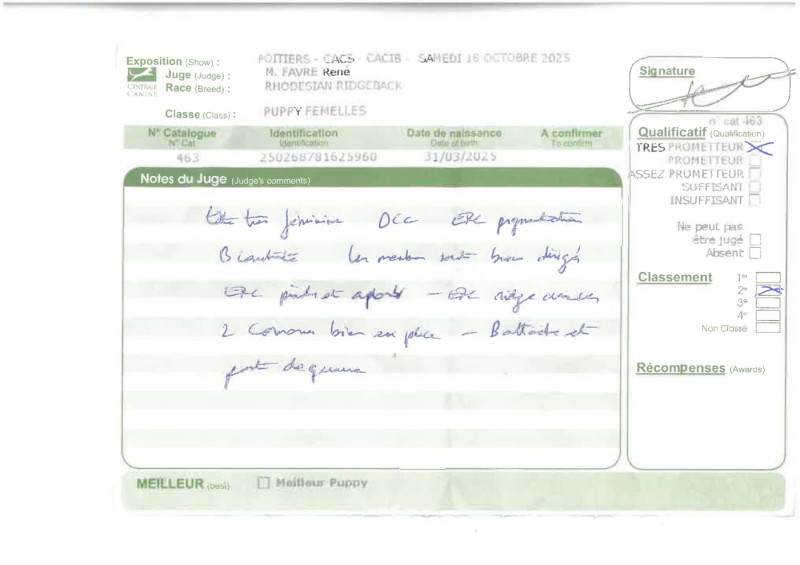 Exposition (Show) : POITIERS - CACS - CACIB - SAMEDI 18 OCTOBRE 2025
CENTRALE CANINE
Juge (Judge) : M. FAVRE René
Race (Breed) : RHODESIAN RIDGEBACK
Classe (Class) : PUPPY FEMELLES
N° Catalogue Identification Date de naissance A confirmer
N° Cat Identification Date of birth To confirm
463 250268781625960 31/03/2025
Notes du Juge (Judge's comments)
tête très féminine DCC EXC pigmentation
B Les membres sont bien dirigés
EXC pieds et aplombs - EXC ridge
2 bien en place - B attache et
port de queue
MEILLEUR (best) Meilleur Puppy
Signature
n° cat 463
Qualificatif (Qualification)
TRES PROMETTEUR
PROMETTEUR
ASSEZ PROMETTEUR
SUFFISANT
INSUFFISANT
Ne peut pas
être jugé
Absent
Classement 1°
2°
3°
4°
Non Classé
Récompenses (Awards)